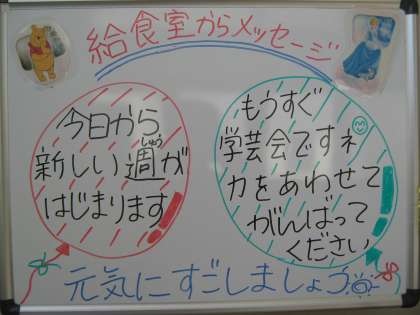 給食室からメッセージ
今日から
新しい週が
しゅう
はじまります
もうすぐ
学芸会ですネ
力をあわせて
がんばって
ください
元気にすごしましょう